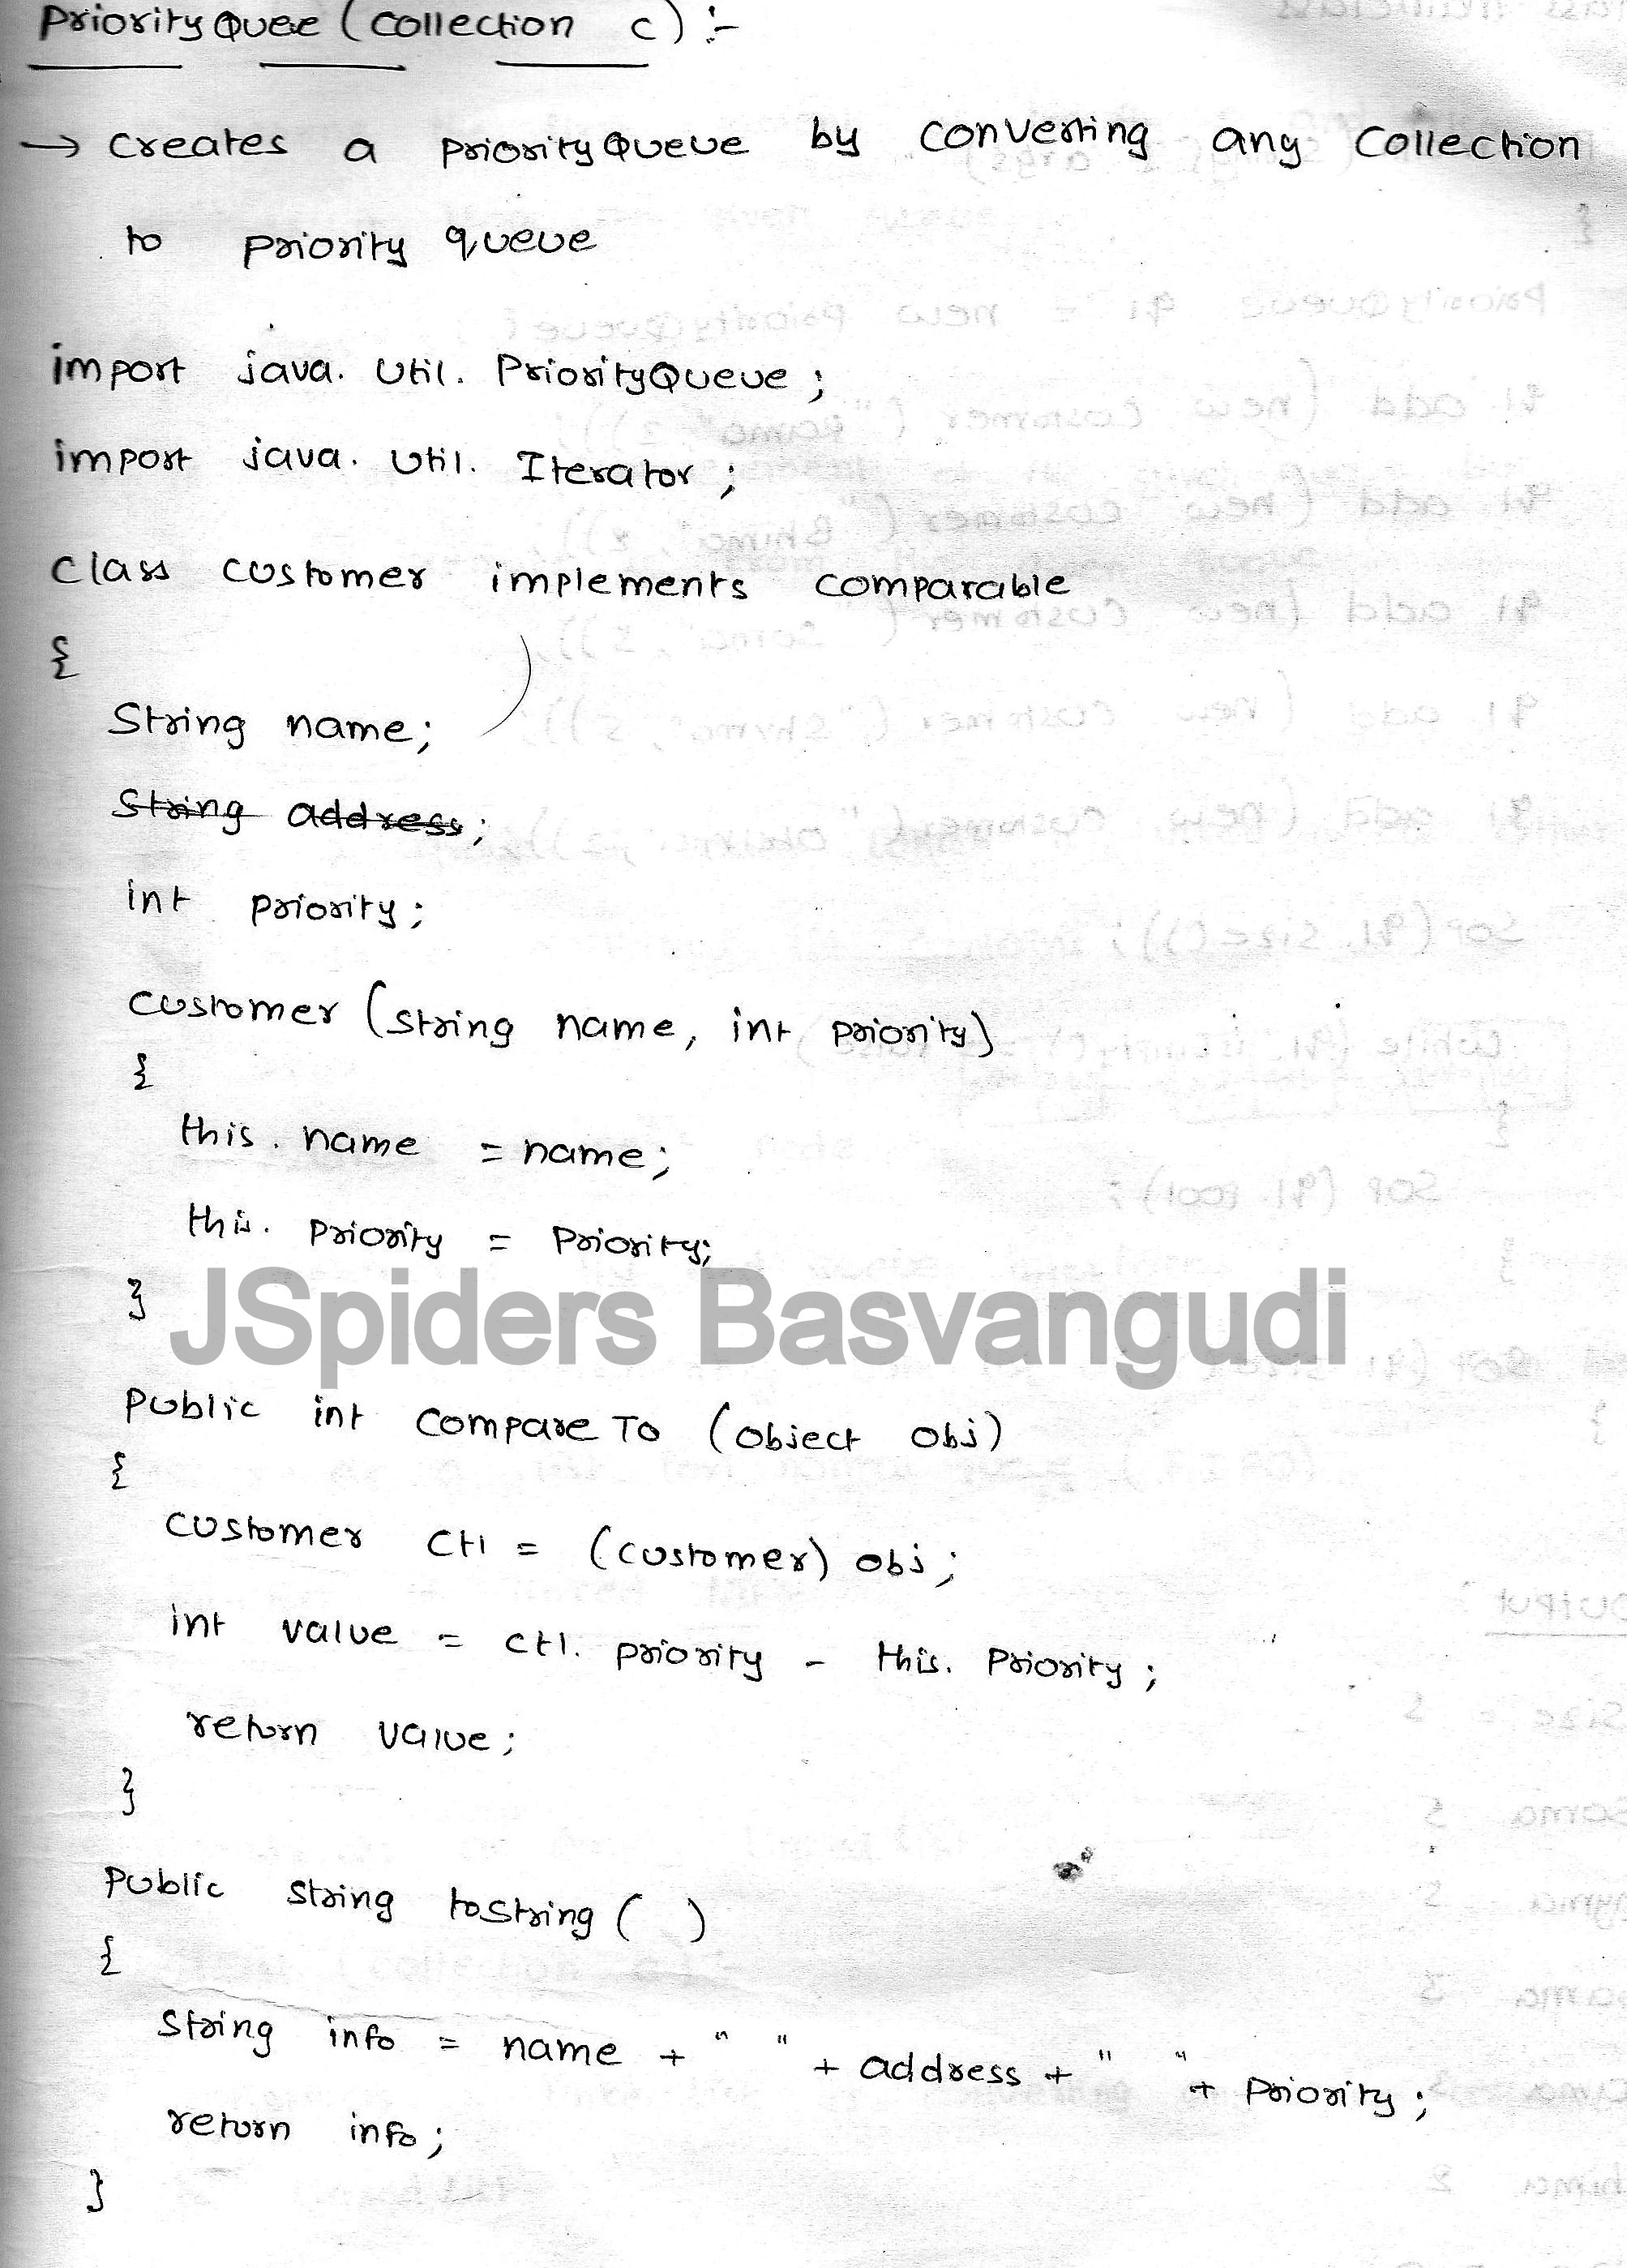 PriorityQuee (Collection c) :-
→ Creates a priorityQueue by converting any Collection
to priority queue
import java. util. PriorityQueue ;
import java. util. Iterator ;
class customer implements comparable
{
String name;
String address;
int priority;
customer (string name, int priority)
{
this. name = name;
this. priority = priority;
}
JSpiders Basvangudi
Public int compareTo (object obj)
{
customer ct1 = (customer) obj ;
int value = ct1. priority - this. Priority ;
return value;
}
Public string toString ( )
{
String info = name + " " + address + " " + priority ;
return info;
}